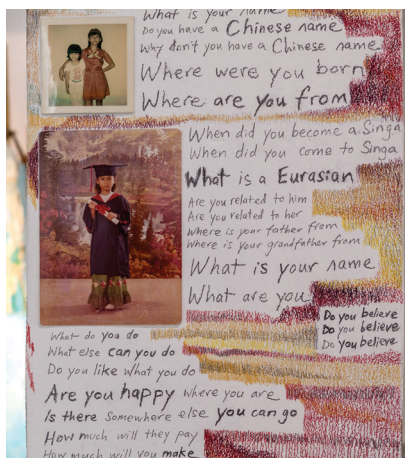 What is your name
Do you have a Chinese name
Why don't you have a Chinese name
Where were you born
Where are you from
When did you become a Singa
When did you come to Singa
What is a Eurasian
Are you related to him
Are you related to her
Where is your father from
Where is your grandfather from
What is your name
What are you
Do you believe
Do you believe
Do you believe
What do you do
What else can you do
Do you like what you do
Are you happy where you are
Is there somewhere else you can go
How much will they pay
How much will you make